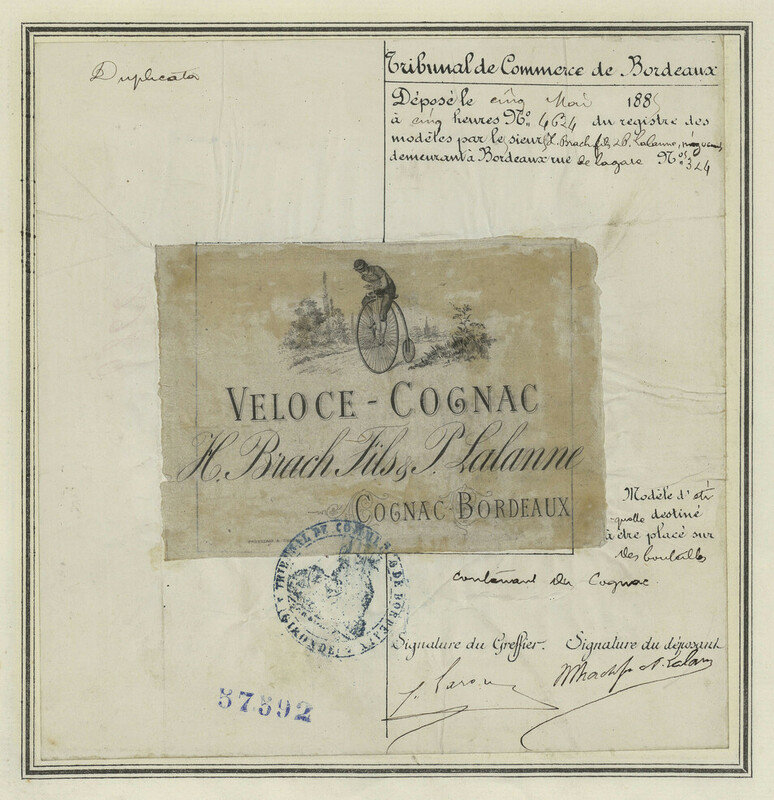 Duplicata
Tribunal de Commerce de Bordeaux
Déposé le cinq Mai 188
à cinq heures No. 4624 du registre des
modèles par le sieur H. Brach fils & P. Lalanne,
demeurant à Bordeaux rue de lagare Nos. 324
VELOCE - COGNAC
H. Brach Fils & P. Lalanne
COGNAC BORDEAUX
Modèle d'éti
quette destiné
à être placé sur
des bouteilles
contenant du Cognac.
TRIBUNAL DE COMMERCE DE BORDEAUX
(GIRONDE)
Signature du Greffier. Signature du déposant
57392